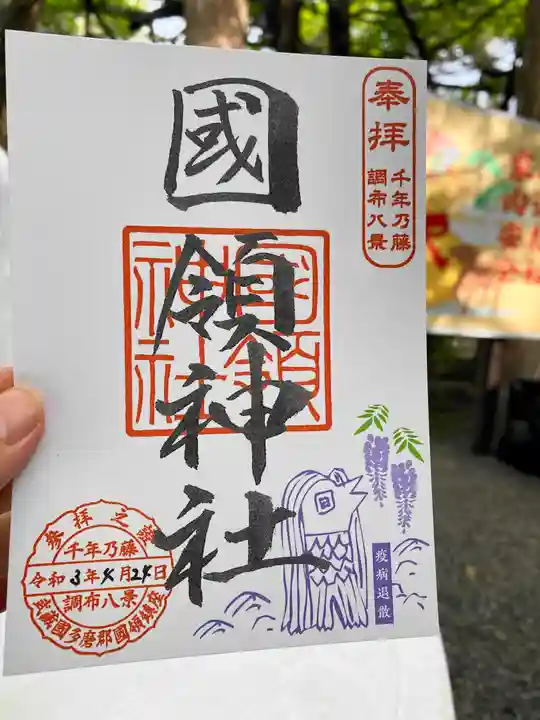 奉拝
千年乃藤
調布八景
國領神社
國領
神社
疫病退散
参拝之證
千年乃藤
令和3年4月24日
調布八景
武蔵國多磨郡國領鎮座